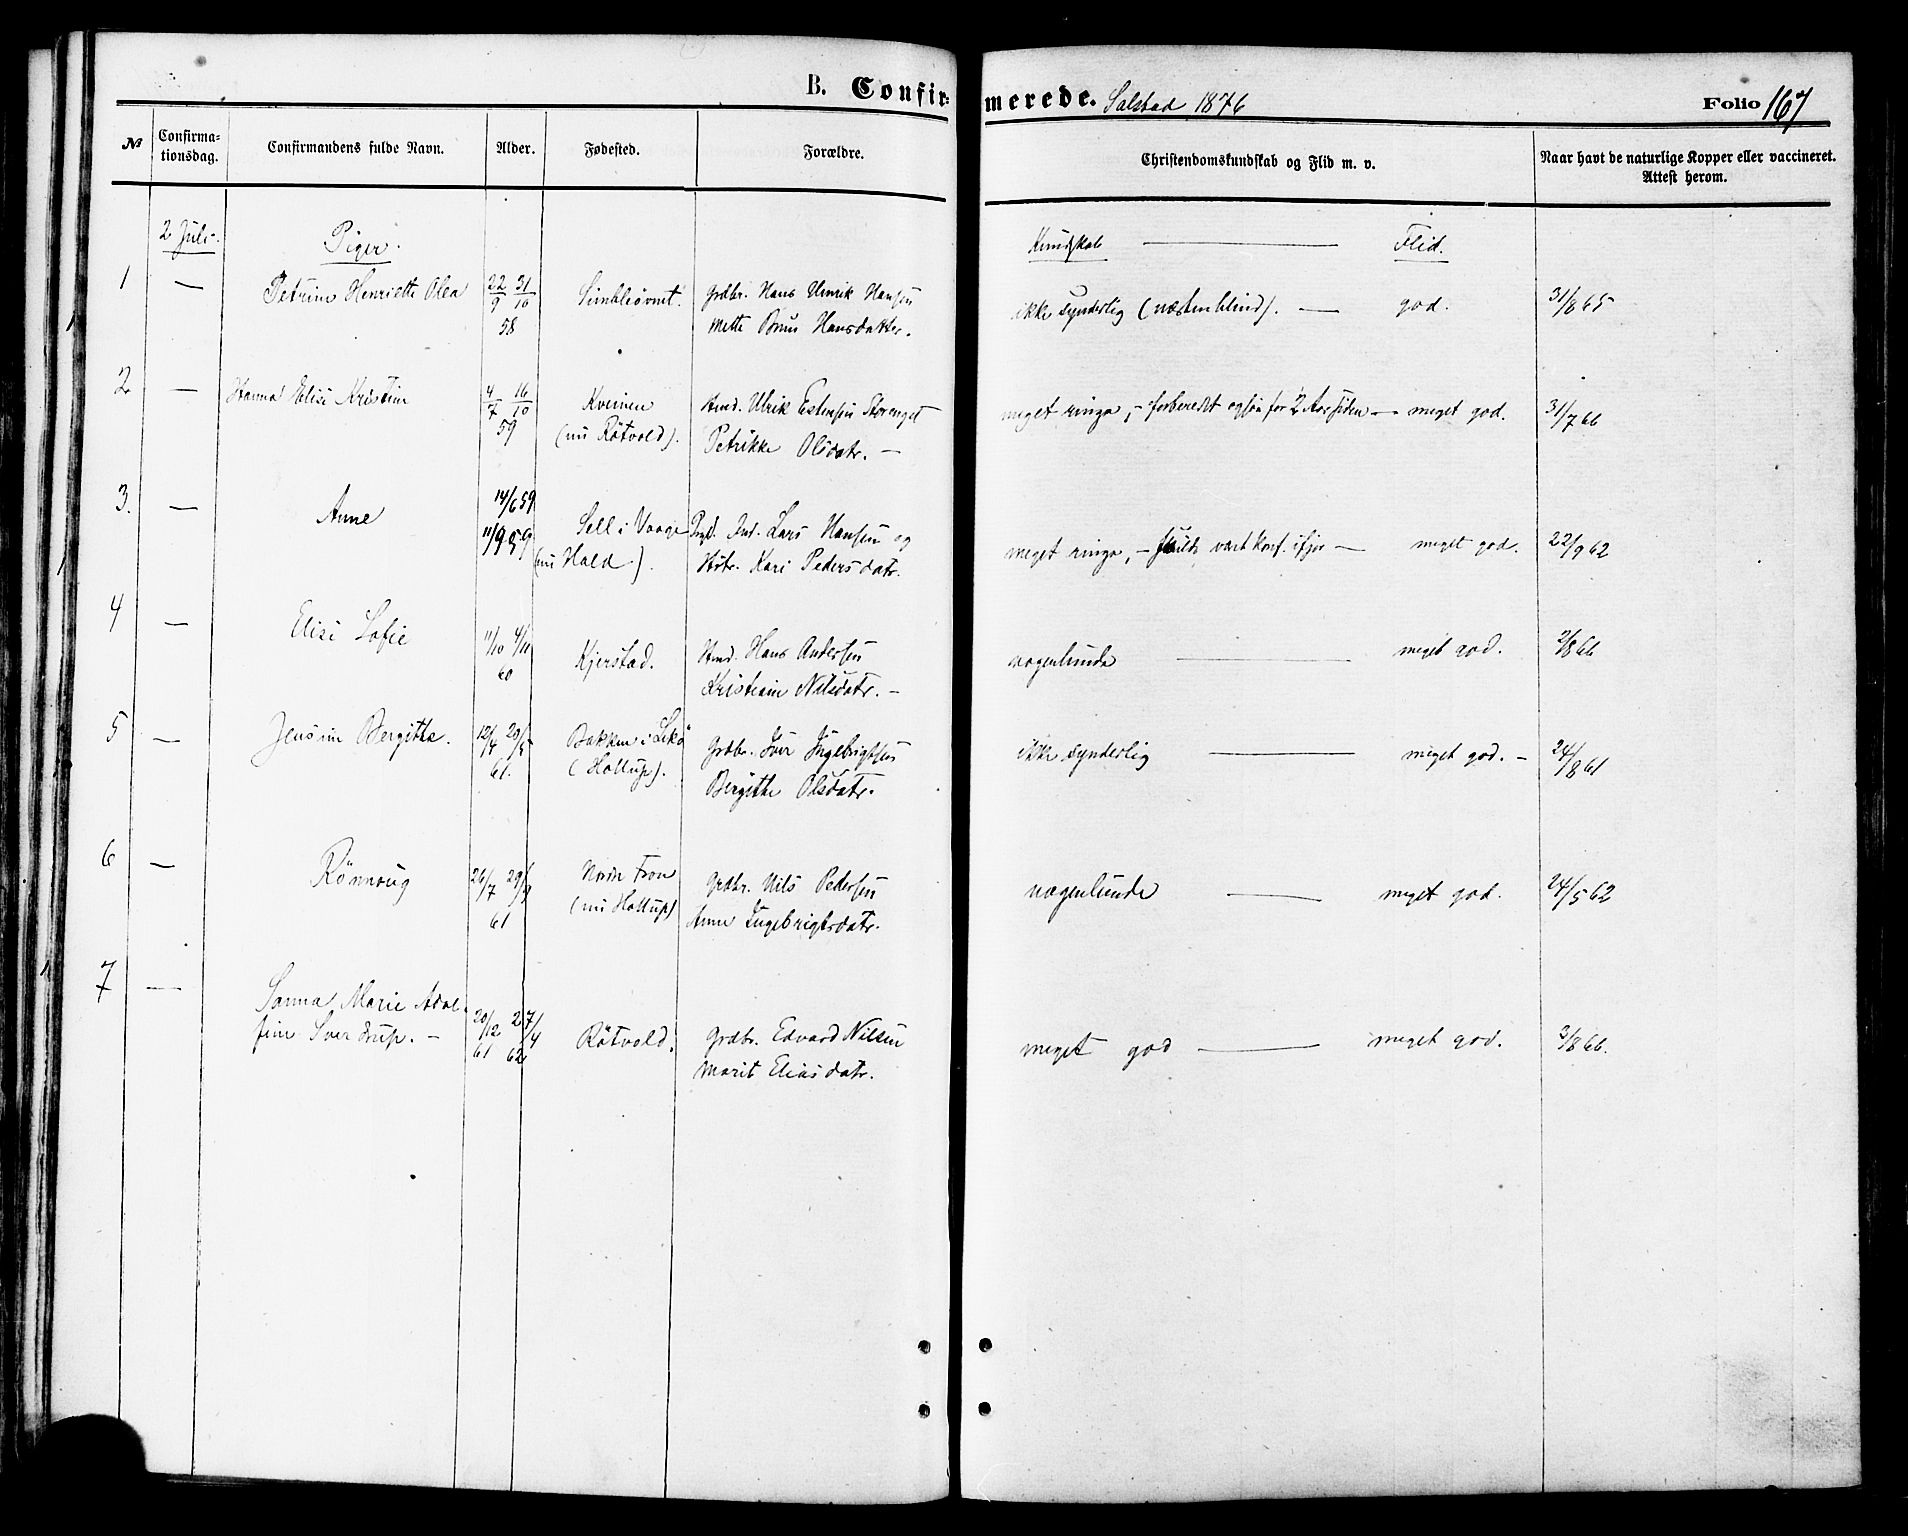 B. Confirmerede. Salstad 1876 Folio 167
№ Confirma-tionsdag. Confirmandens fulde Navn. Alder. Fødested. Forældre. Christendomskundskab og Flid m. v. Naar havt de naturlige Kopper eller vaccineret. Attest herom.
2 Juli. Piger. Kundskab — Flid.
1 — Petrine Henriette Olea 22/9 31/10 58 Grdbr. Hans Ulrik Hansen
Mette Brus Hansdatter.
ikke synderlig (næsten blind). — god. 31/8 65
2 — Hanna Elise Kristine 4/7 16/10 59 Kveinen
(nu Rötvold).
Ulrik Estensen Storenget
Petrikke Olsdatr. —
meget ringe, — forberedt ogsaa for 2 Aar siden — meget god. 31/7 66
3. — Anne 14/6 59
11/9 59
Sell i Vaage
(nu Hald).
Lars Hansen og
Hstr. Kari Pedersdatr.
meget ringe, — vært konf. ifjor — meget god. 22/9 62
4 — Elise Sofie 11/10 4/11 60 Kjerstad. Hans Andersen
Kristiane Nilsdatr. —
nogenlunde — meget god. 2/8 66
5 — Jensine Bergitte. 12/4 20/5 61. Bakken i Lekö
(Hollup).
Grdbr. Iver Ingebrigtsen
Bergitte Olsdatr.
ikke synderlig — meget god. — 24/8 61
6 — Rönnoug 26/7 29/9 61 Nordre Fron
(nu Hollup)
Grdbr. Nils Pedersen
Anne Ingebrigtsdatr.
nogenlunde — meget god. 24/5 62
7 — Sanna Marie Adol-
fine Sverdrup. —
20/12 61 27/4 62 Rötvold. Grdbr. Edvard Nilsen
Marit Eliasdatr.
meget god — meget god. 3/8 66.